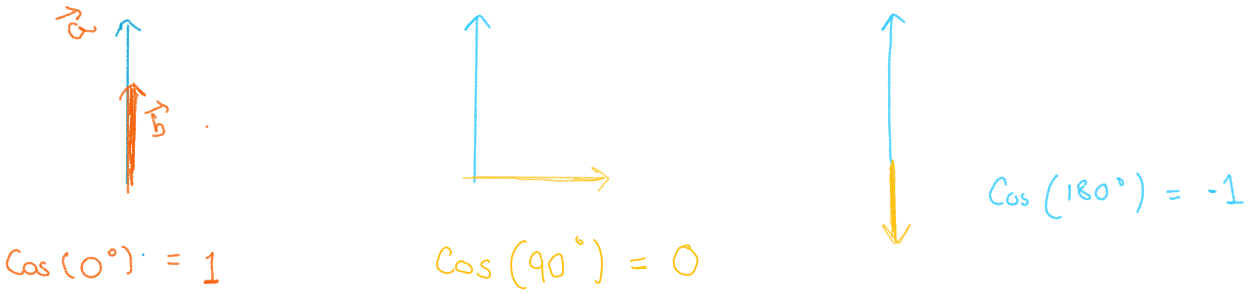 a⃗
b⃗
Cos(0°) = 1
Cos(90°) = 0
Cos(180°) = -1